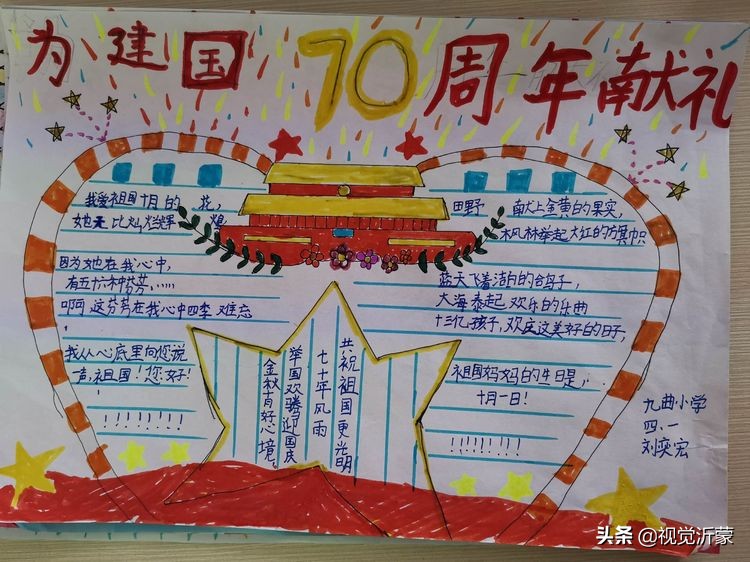 为建国70周年献礼
我爱祖国十月的 花,
她是 比灿烂辉 煌
因为她在我心中,
有五十六种芬芳......
啊 这芬芳在我心中四季 难忘
我从心底里向您说
声,祖国!您好!
!!!!!!!
田野 献上金黄的果实,
枫林举起大红的旗帜
蓝天飞着洁白的鸽子,
大海奏起 欢乐的乐曲
十三亿孩子,欢庆这美好的日子,
祖国妈妈的生日是,
十月一日!
!!!!!!!
共祝祖国更光明
七十年风雨
举国欢腾迎国庆
金秋十月好心境。
九曲小学
四、一
刘奕宏
头条 @视觉沂蒙